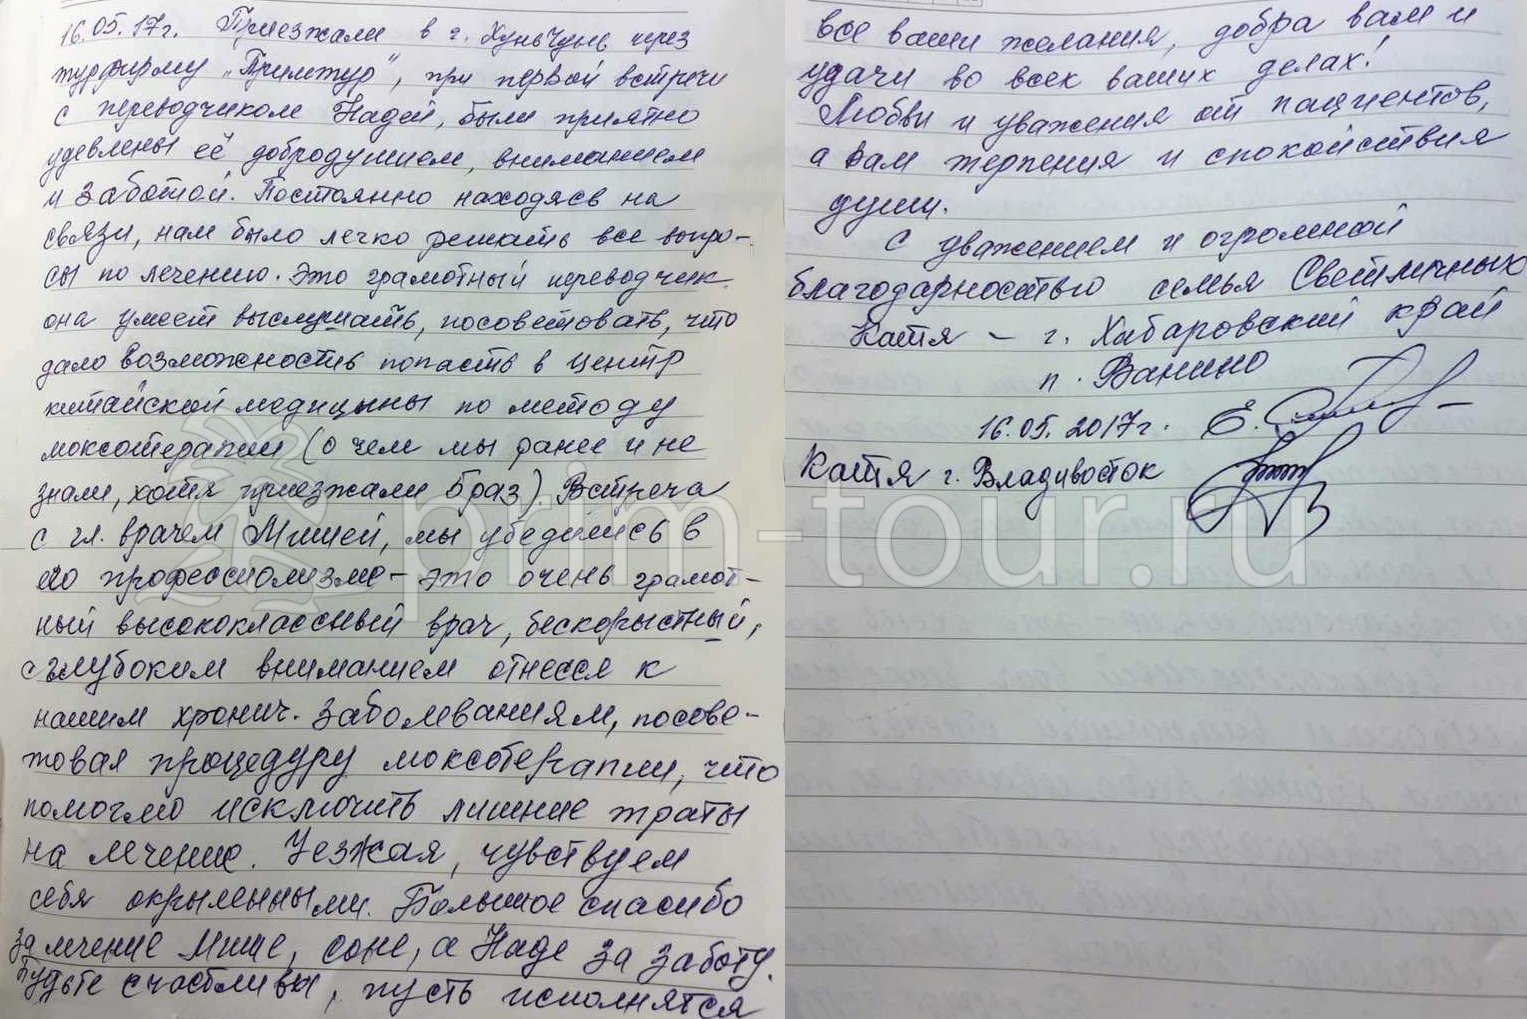 16.05.17г. Приезжали в г. Хуньчунь через
турфирму „Примтур“, при первой встречи
с переводчиком Надей, были приятно
удевлены её добродушием, вниманием
и заботой. Постоянно находясь на
связи, нам было легко решать все вопро-
сы по лечению. Это грамотный переводчик
она умеет выслушать, посоветовать, что
дало возможность попасть в центр
китайской медицыны по методу
моксотерапии (о чем мы ранее и не
знали, хотя приезжали 5 раз). Встреча
с гл. врачем Мишей, мы убедились в
его профессиолизме – это очень грамот-
ный высококлассный врач, бескорыстный,
с глубоким вниманием отнесся к
нашим хронич. заболеваниям, посове-
товал процедуру моксотерапии, что
помогло исключить лишние траты
на лечение. Уезжая, чувствуем
себя окрыленными. Большое спасибо
за лечение Мише, Соне, а Наде за заботу.
Будьте счастливы, пусть исполнятся
все ваши желания, добра вам и
удачи во всех ваших делах!
Любви и уважения от пациентов,
а вам терпения и спокойствия
души.
С уважением и огромной
благодарностью семья Светличных
Катя – г. Хабаровский край
п. Ванино
16.05.2017г.
Катя г. Владивосток
prim-tour.ru